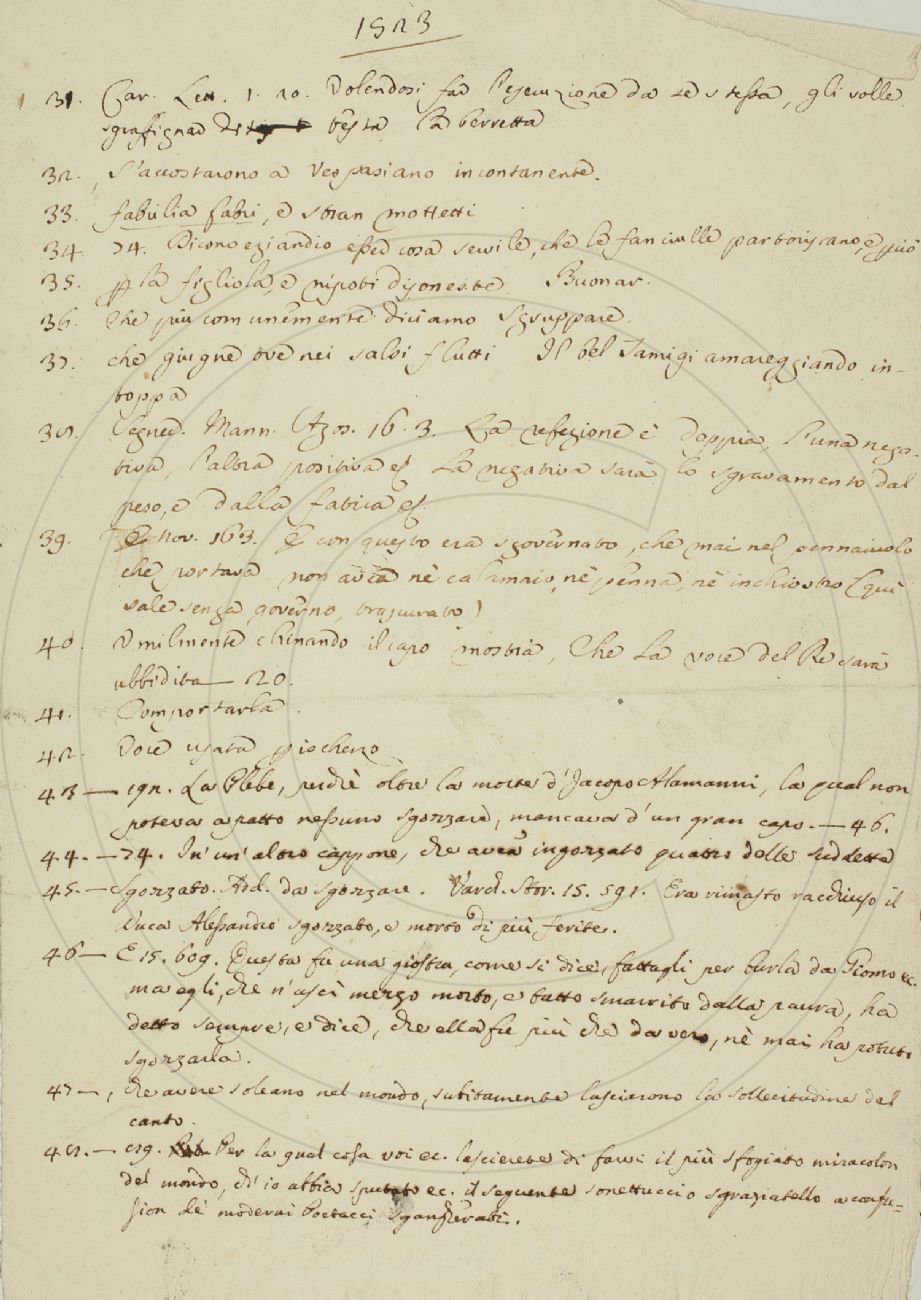 1523
31. Car. Lett. 1. 20. Volendosi far l'esecuzione da se stessa, gli volle
sgraffignar di testa la berretta
32. S'accostarono a Vespasiano incontanente.
33. fabulia fabri, e stran mottetti
34. 74. Dicono eziandio esser cosa sevile, che le fanciulle partoriscano, e più
35. la figliola, e nipoti disoneste. Buonar.
36. Che più comunemente diciamo Sgruppare.
37. che giugne ove nei salsi flutti Il bel Tamigi amareggiando in-
toppa
38. Segner. Mann. Agos. 16. 3. La refezione è doppia, l'una nega-
tiva, l'altra positiva ec. La negativa sarà lo sgravamento dal
peso, e dalla fatica ec.
39. Nov. 16. 3. E con questo era sgovernato, che mai nel pennaiuolo
che portava non avea nè calamaio, nè penna, nè inchiostro (qui
vale senza governo, trascurato)
40. Umilmente chinando il capo mostrà, Che La voce del Re sarà
ubbidita — 20.
41. Comportarla.
42. Voce usata per ischerzo
43 — 192. La Plebe, perchè oltre la morte d'Jacopo Alamanni, la qual non
poteva a patto nessuno sgozzare, mancava d'un gran capo. — 46.
44. — 74. In un' altro cappone, che avea ingozzato quattro delle suddette
45. — Sgozzato. Add. da sgozzare. Varch. Stor. 15. 591. Era rimasto racchiuso il
Duca Alessandro sgozzato, e morto di più ferite.
46 — E 15. 609. Questa fu una giostra, come si dice, fattagli per burla da Giomo ec.
ma egli, che n'uscì mezzo morto, e tutto smarrito dalla paura, ha
detto sempre, e dice, che ella fu più che da vero, nè mai ha potuto
sgozzarla.
47 —, che avere soleano nel mondo, subitamente lasciarono la sollecitudine del
canto.
48. — 139. Per la qual cosa voi ec. lascierete di farvi il più sfogiato miracolon
del mondo, ch' io abbia sputato ec. il seguente sonettuccio sgraziatello a confu=
sion de' moderni Poetacci sgangherati.